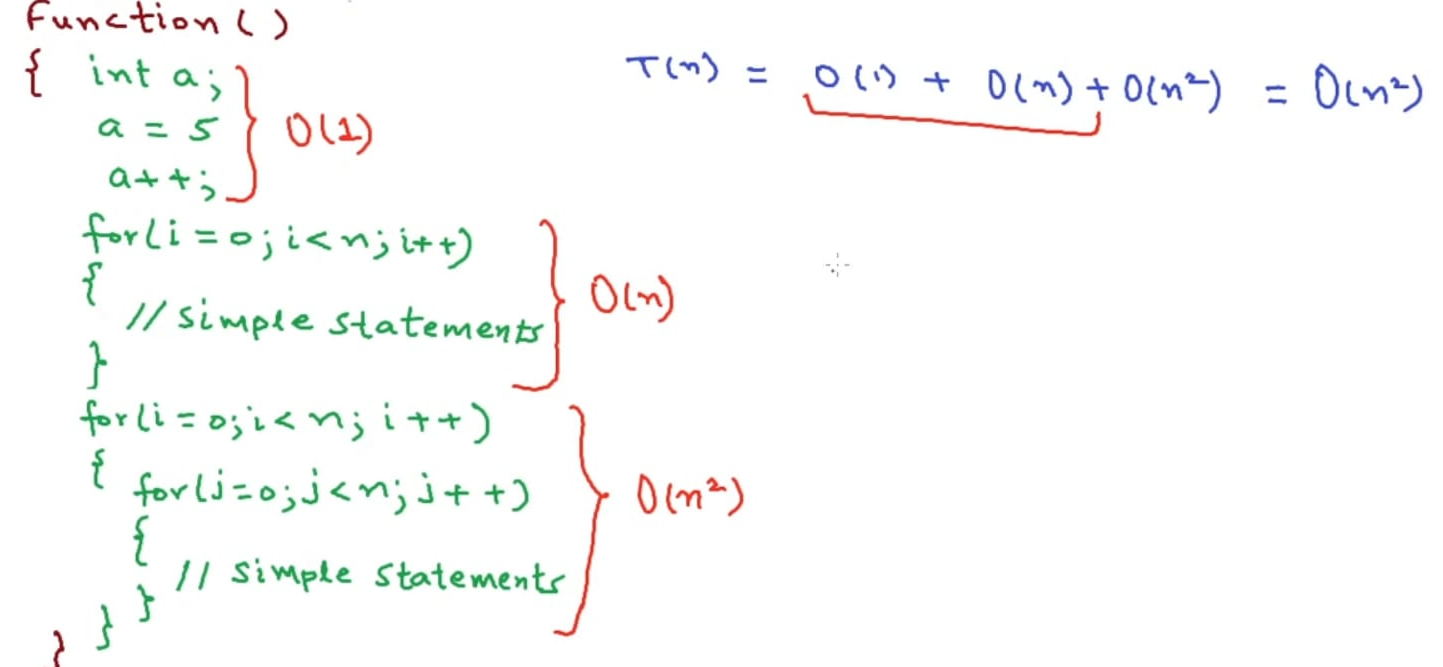 Function ( )
{ int a; } O(1)
a = 5
a++;
for(i = 0; i<n; i++)
{
// simple statements } O(n)
}
for(i = 0; i < n; i ++)
{ for(j=0; j<n; j++) } O(n²)
{
// simple statements
}
}
}
T(n) = O(1) + O(n) + O(n²) = O(n²)